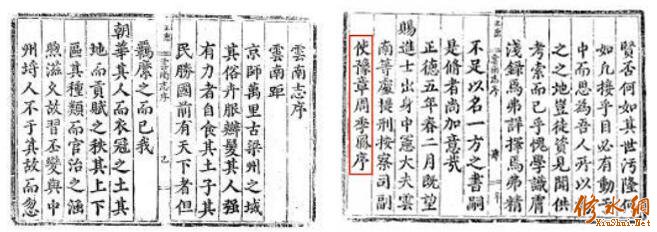 雲南志序
雲南距
京師萬里古梁州之域
其俗卉服辮髮其人强
有力者自食其土子其
民勝國前有天下者但
羈縻之而已我
雲南志序
朝華其人而衣冠之土其
地而貢賦之秩其上下
區其種類而官治之涵
煦滋久故習丕變與中
州埒人不于其故而忽
賢否何如其世汚隆何
如凢接乎目必有動乎
中而思為吾人所以
之之地豈徒資見聞供
考索而已乎愧學識膚
淺録焉弗詳擇焉弗精
雲南志序
不足以名一方之書嗣
是脩者尚加意哉
正德五年春二月既望
賜進士出身中憲大夫雲
南等處提刑按察司副
使豫章周季鳳序
修水網
XiuShui.Net